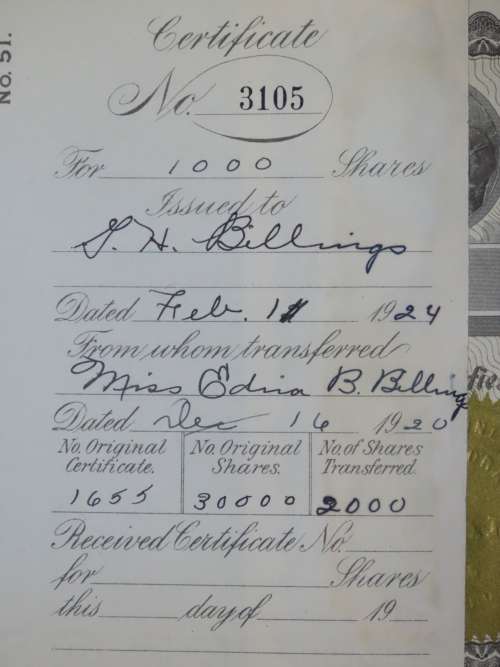 No. 51.
Certificate
No. 3105
For 1000 Shares
Issued to
G. H. Billings
Dated Feb. 11 1924
From whom transferred
Miss Edna B. Billings
Dated Dec 16 1920
No. Original Certificate. No. Original Shares. No. of Shares Transferred.
1655 30000 2000
Received Certificate No.
for Shares
this day of 19